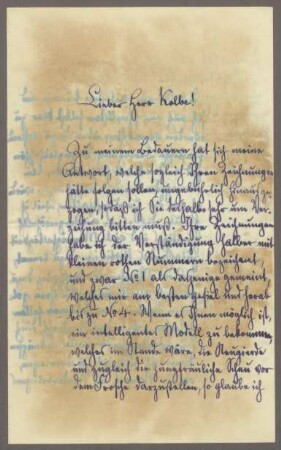 Lieber Herr Kolbe!
Zu meinem Bedauern hat sich meine
Antwort, welche sogleich Ihren Zeichnungen
hätte folgen sollen, ungebührlich hinausge-
zogen, so daß ich Sie deshalb sehr um Ver-
zeihung bitten muß. Ihre Zeichnungen
habe ich der Verständigung halber mit
kleinen rothen Nummern bezeichnet,
und zwar No 1 als dasjenige gemeint,
welches mir am besten gefiel und herab
bis zu No 4. Wenn es Ihnen möglich ist,
ein intelligentes Modell zu bekommen,
welches im Stande wäre, die Neugierde
und zugleich die jungfräuliche Scheu vor
dem Frosche darzustellen, so glaube ich